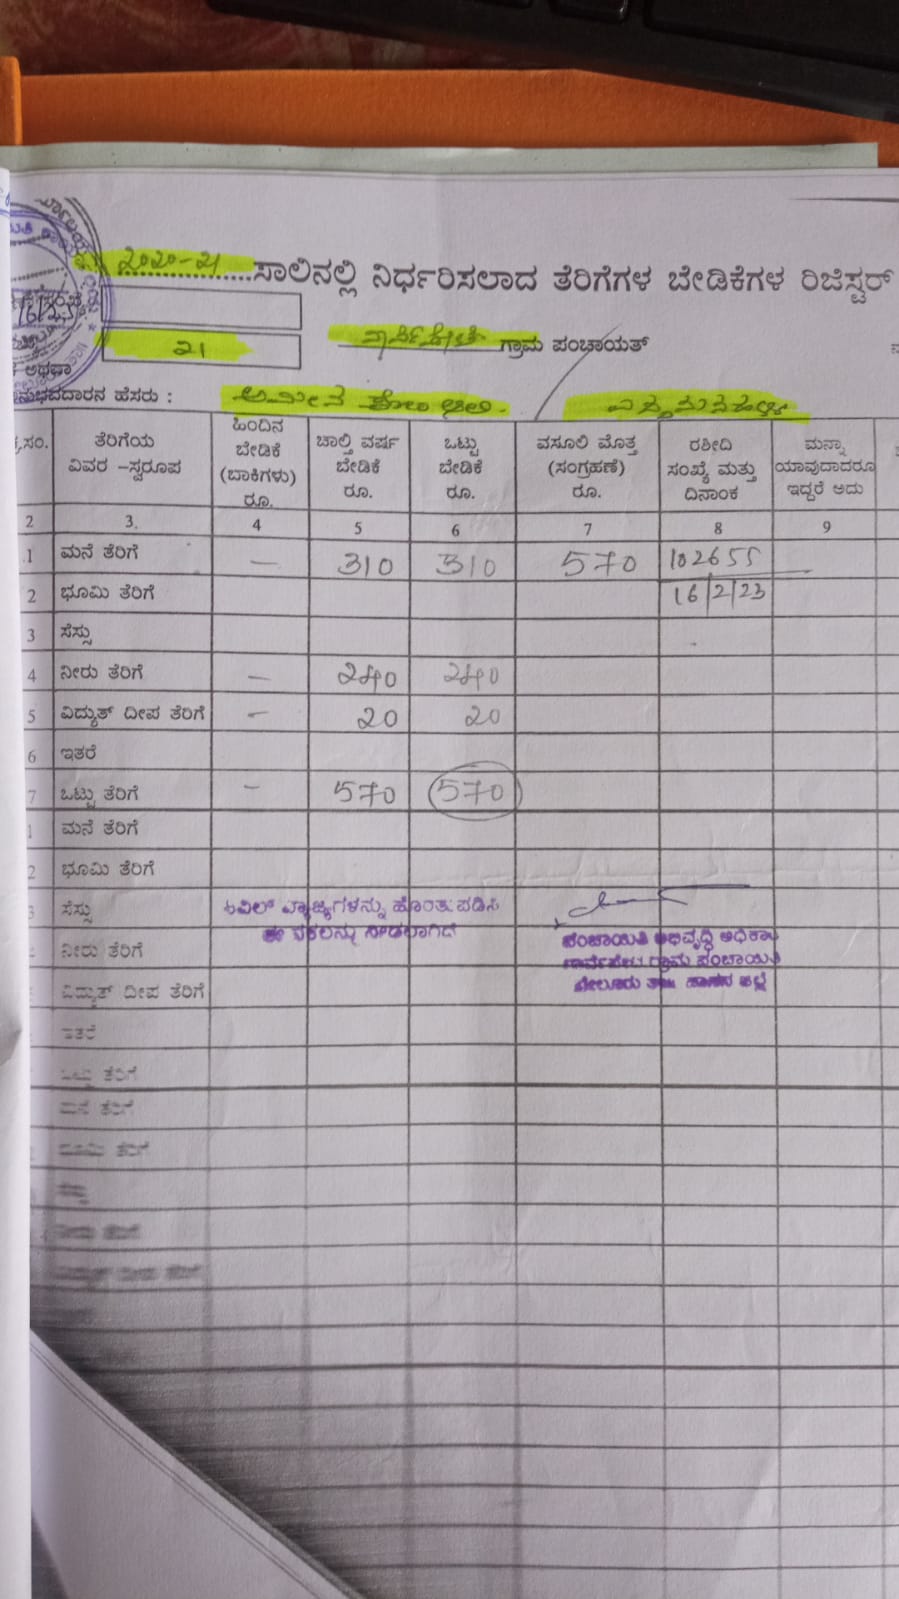 ೨೦೨೦-೨೧ ಸಾಲಿನಲ್ಲಿ ನಿರ್ಧರಿಸಲಾದ ತೆರಿಗೆಗಳ ಬೇಡಿಕೆಗಳ ರಿಜಿಸ್ಟರ್
16/2/23
೨೧ ಗ್ರಾಮ ಪಂಚಾಯತ್
ಅಥವಾ
ನುಭವದಾರನ ಹೆಸರು :
ಕ್ರ.ಸಂ. ತೆರಿಗೆಯ ವಿವರ -ಸ್ವರೂಪ ಹಿಂದಿನ ಬೇಡಿಕೆ (ಬಾಕಿಗಳು) ರೂ. ಚಾಲ್ತಿ ವರ್ಷ ಬೇಡಿಕೆ ರೂ. ಒಟ್ಟು ಬೇಡಿಕೆ ರೂ. ವಸೂಲಿ ಮೊತ್ತ (ಸಂಗ್ರಹಣೆ) ರೂ. ರಶೀದಿ ಸಂಖ್ಯೆ ಮತ್ತು ದಿನಾಂಕ ಮನ್ನಾ ಯಾವುದಾದರೂ ಇದ್ದರೆ ಅದು
2 3. 4 5 6 7 8 9
1 ಮನೆ ತೆರಿಗೆ — 310 310 570 102655
2 ಭೂಮಿ ತೆರಿಗೆ 16/2/23
3 ಸೆಸ್ಸು
4 ನೀರು ತೆರಿಗೆ — 240 240
5 ವಿದ್ಯುತ್ ದೀಪ ತೆರಿಗೆ — 20 20
6 ಇತರೆ
7 ಒಟ್ಟು ತೆರಿಗೆ - 570 570
1 ಮನೆ ತೆರಿಗೆ
2 ಭೂಮಿ ತೆರಿಗೆ
3 ಸೆಸ್ಸು ಸಿವಿಲ್ ವ್ಯಾಜ್ಯಗಳನ್ನು ಹೊರತು ಪಡಿಸಿ
ಈ ನಕಲನ್ನು ನೀಡಲಾಗಿದೆ
ನೀರು ತೆರಿಗೆ
ವಿದ್ಯುತ್ ದೀಪ ತೆರಿಗೆ
ಇತರೆ
ಒಟ್ಟು ತೆರಿಗೆ
ಮನೆ ತೆರಿಗೆ
ಭೂಮಿ ತೆರಿಗೆ
ಪಂಚಾಯಿತಿ ಅಭಿವೃದ್ಧಿ ಅಧಿಕಾರಿ
ಗ್ರಾಮ ಪಂಚಾಯಿತಿ
ಬೇಲೂರು ತಾಃ ಹಾಸನ ಜಿಲ್ಲೆ